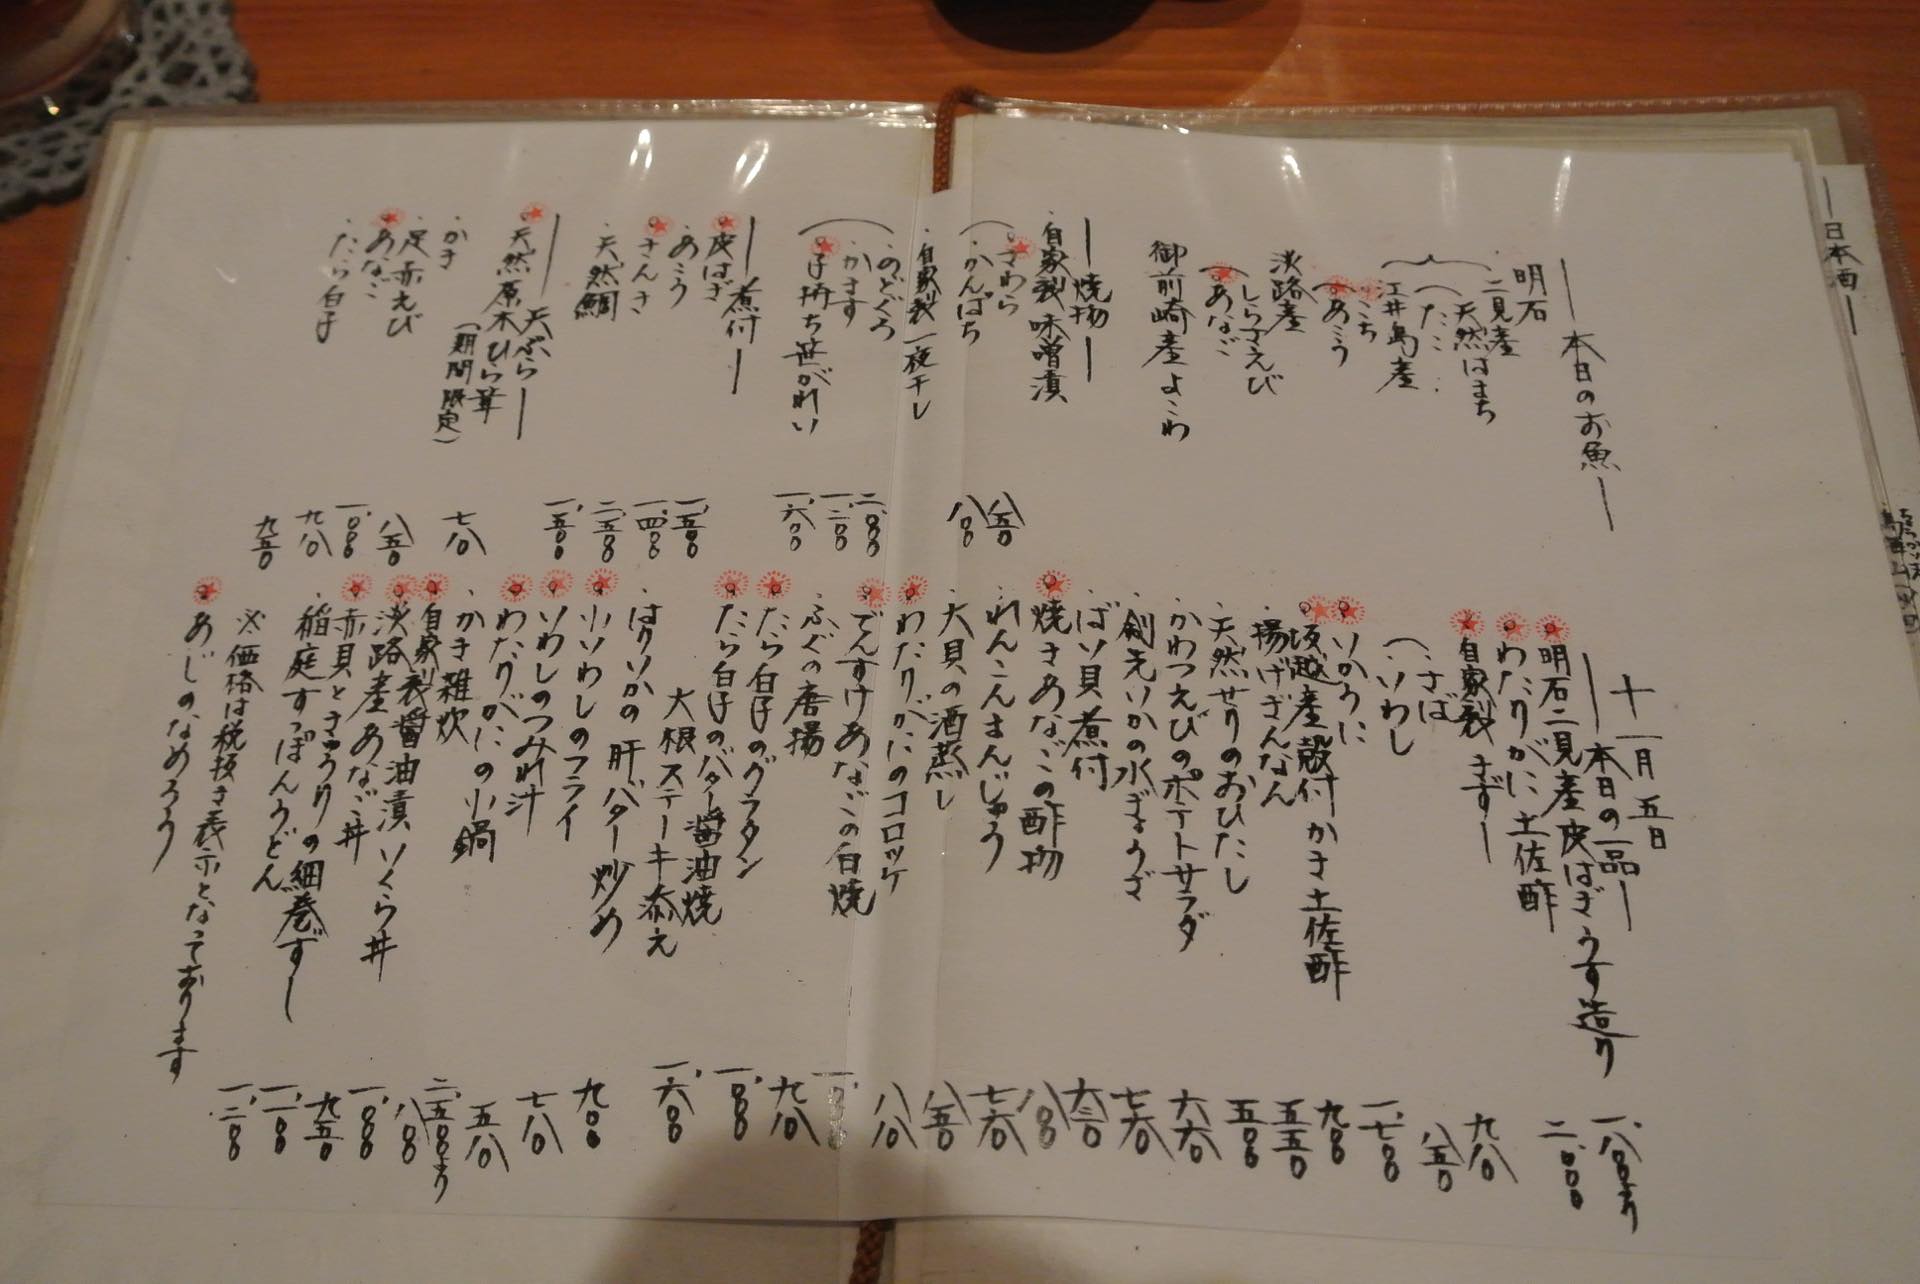 ―日本酒―
十一月五日
―本日のお魚―
明石
二見産
天然はまち
たこ
江井島産
こち
あこう
淡路産
しらさえび
あなご
御前崎産よこわ
―焼物―
自家製味噌漬
さわら
八五〇
かんぱち
八八〇
自家製一夜干し
のどぐろ
二、〇〇〇
かます
一、二〇〇
子持ち笹がれい
一、六〇〇
―煮付―
皮はぎ
一、五〇〇
あこう
一、四〇〇
さんき
二、五〇〇
天然鯛
一、五〇〇
―天ぷら―
天然原木ひら茸
(期間限定)
七八〇
かき
八五〇
足赤えび
一、〇〇〇
あなご
九八〇
たら白子
九五〇
―本日の一品―
明石二見産皮はぎうす造り
一、八〇〇より
わたりがに土佐酢
二、〇〇〇
自家製きずし
さば
九八〇
いわし
八五〇
いかうに
一、七〇〇
坂越産殻付かき土佐酢
九〇〇
揚げぎんなん
五五〇
天然せりのおひたし
五〇〇
かわつえびのポテトサラダ
六六〇
剣先いかの水ぎょうざ
七六〇
ばい貝煮付
六三〇
焼きあなごの酢物
八八〇
れんこんまんじゅう
七六〇
大貝の酒蒸し
八五〇
わたりがにのコロッケ
八八〇
でんすけあなごの白焼
ふぐの唐揚
九八〇
たら白子のグラタン
一、〇〇〇
たら白子のバター醤油焼
大根ステーキ添え
一、六〇〇
はりいかの肝バター炒め
九〇〇
小いわしのフライ
七八〇
いわしのつみれ汁
五八〇
わたりがにの小鍋
二、五〇〇より
かき雑炊
八〇〇
自家製醤油漬いくら丼
一、〇〇〇
淡路産あなご丼
九五〇
赤貝ときゅうりの細巻ずし
一、一〇〇
稲庭すっぽんうどん
一、二〇〇
※価格は税抜き表示となっております
あじのなめろう